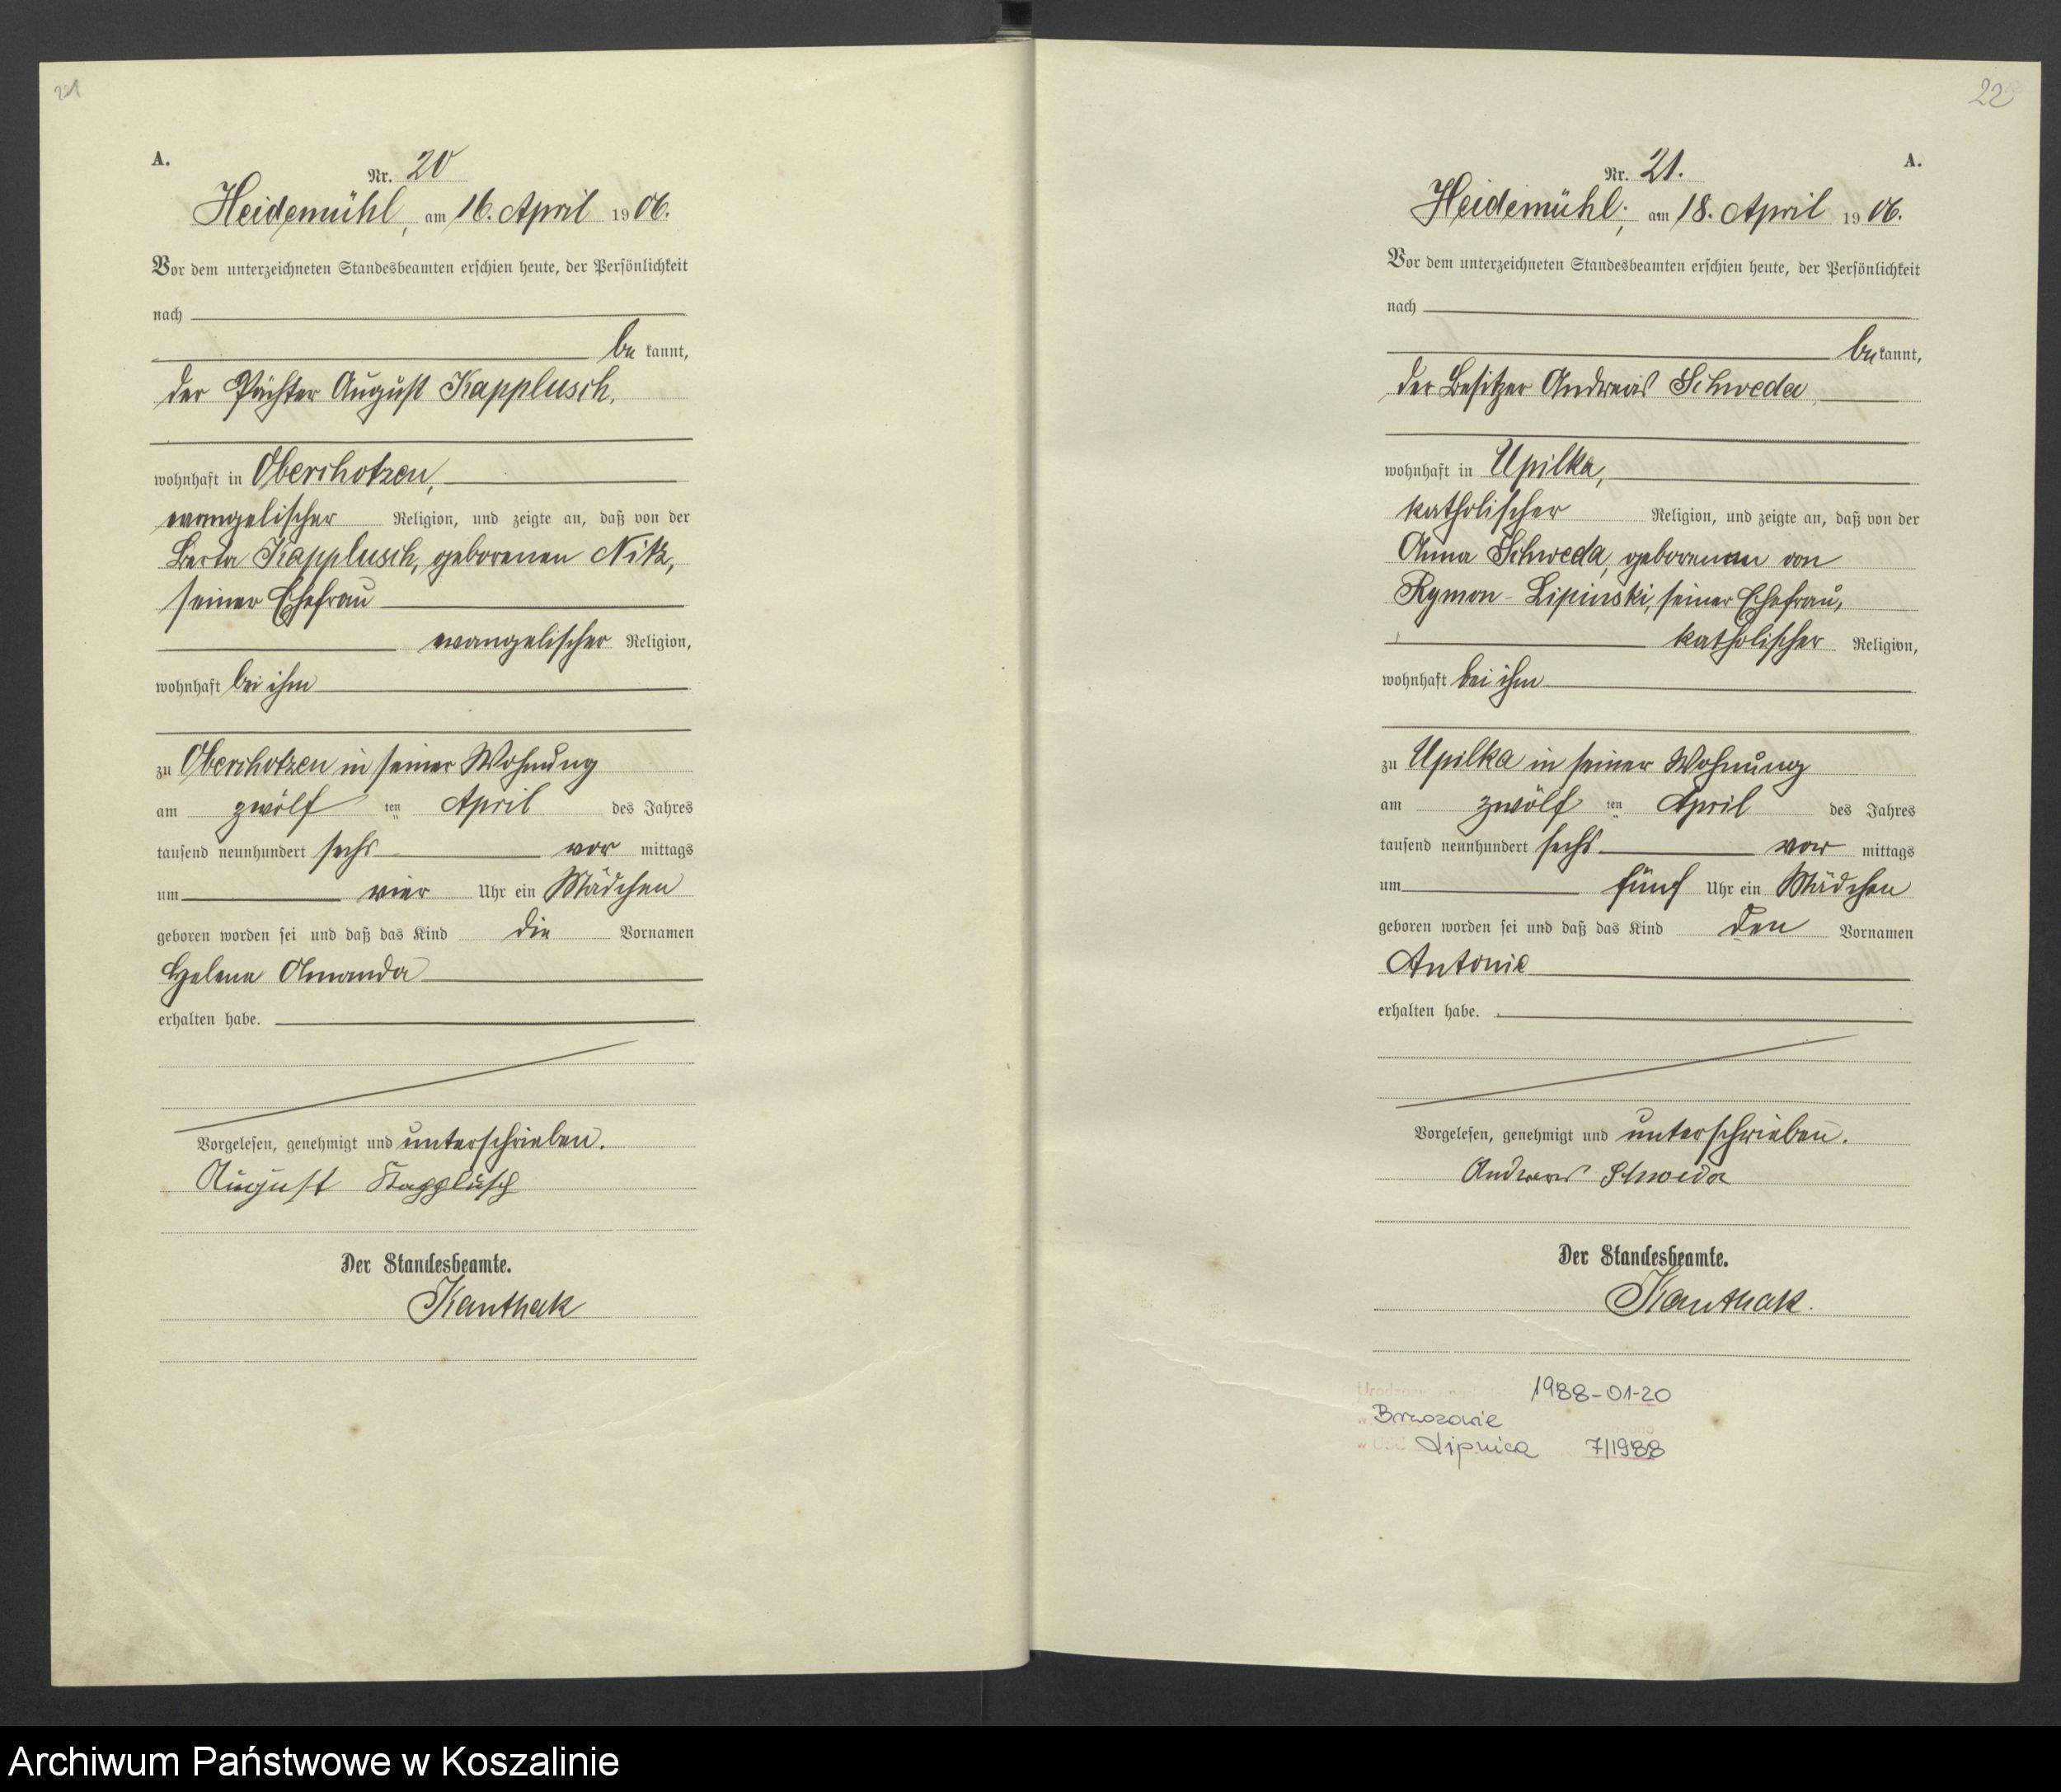 21
A.
Nr. 20
Heidemühl, am 16. April 1906.
Vor dem unterzeichneten Standesbeamten erschien heute, der Persönlichkeit
nach
be kannt,
der Pächter August Kapplusch,
wohnhaft in Oberchotzen,
evangelischer Religion, und zeigte an, daß von der
Berta Kapplusch, geborenen Nitz,
seiner Ehefrau
evangelischer Religion,
wohnhaft bei ihm
zu Oberchotzen in seiner Wohnung
am zwölf ten April des Jahres
tausend neunhundert sechs vor mittags
um vier Uhr ein Mädchen
geboren worden sei und daß das Kind die Vornamen
Helene Amanda
erhalten habe.
Vorgelesen, genehmigt und unterschrieben.
August Kapplusch
Der Standesbeamte.
Kanthak
22
A.
Nr. 21.
Heidemühl, am 18. April 1906.
Vor dem unterzeichneten Standesbeamten erschien heute, der Persönlichkeit
nach
be kannt,
der Besitzer Andreas Schweda
wohnhaft in Upilka,
katholischer Religion, und zeigte an, daß von der
Anna Schweda, geborenen von
Rymon-Lipinski, seiner Ehefrau,
katholischer Religion,
wohnhaft bei ihm
zu Upilka in seiner Wohnung
am zwölf ten April des Jahres
tausend neunhundert sechs vor mittags
um fünf Uhr ein Mädchen
geboren worden sei und daß das Kind den Vornamen
Antonie
erhalten habe.
Vorgelesen, genehmigt und unterschrieben.
Andreas Schweda
Der Standesbeamte.
Kanthak.
1988-01-20
w Brzozowie
w USC Lipnica 7/1988
Archiwum Państwowe w Koszalinie